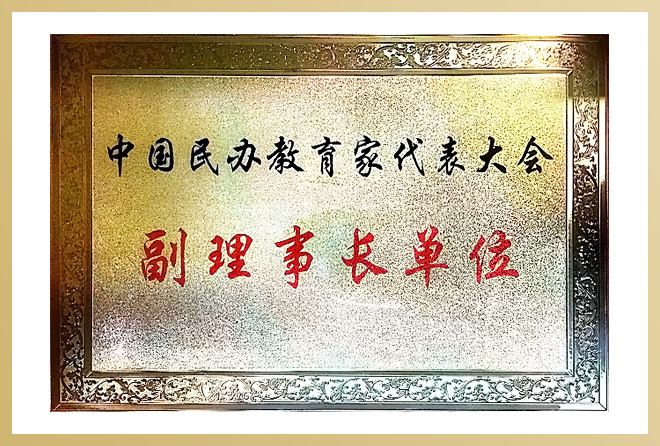 中国民办教育家代表大会
副理事长单位